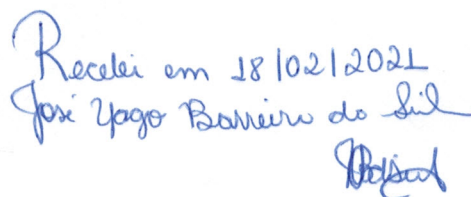 Recebi em 18/02/2021
José Yago Barreiro do Sil